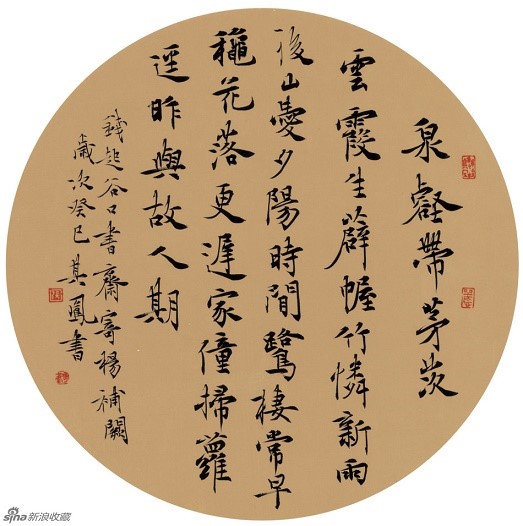 泉壑帶茅茨
雲霞生薜幄竹憐新雨
後山愛夕陽時間鷺棲常早
穐花落更遲家僮掃蘿
逕昨與故人期
錢起谷口書齋寄楊補闕
歲次癸巳其鳳書
sina新浪收藏